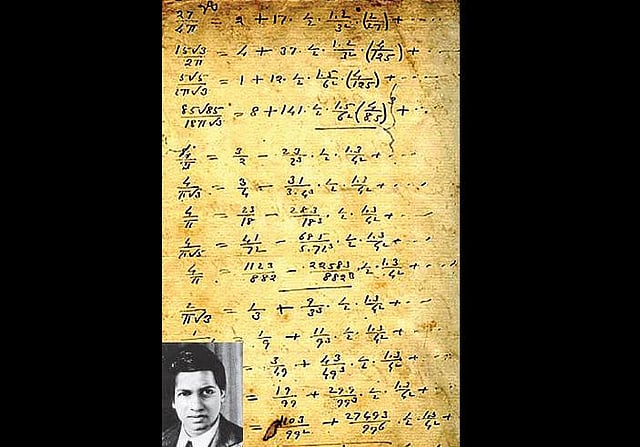 27/4π = 2 + 17 · 1/2 · 1.2/3² · (2/27) + ···
15√3/2π = 4 + 37 · 1/2 · 1.2/3² · (4/125) + ···
5√5/2π√3 = 1 + 12 · 1/2 · 1.5/6² · (4/125) + ···
85√85/18π√3 = 8 + 141 · 1/2 · 1.5/6² (4/85)³ + ···
4/π = 3/2 - 23/2³ · 1/2 · 1.3/4² + ···
4/π√3 = 3/4 - 31/3.4³ · 1/2 · 1.3/4² + ···
4/π = 23/18 - 283/18³ · 1/2 · 1.3/4² + ···
4/π√5 = 41/72 - 685/5.72³ · 1/2 · 1.3/4² + ···
4/π = 1123/882 - 22583/882³ · 1/2 · 1.3/4² + ···
2/π√3 = 1/3 + 9/3³ · 1/2 · 1.3/4² + ···
= 1/9 + 11/9³ · 1/2 · 1.3/4² + ···
= 3/49 + 43/49³ · 1/2 · 1.3/4² + ···
= 19/99 + 299/99³ · 1/2 · 1.3/4² + ···
= 1103/99² + 27493/99⁶ · 1/2 · 1.3/4² + ···